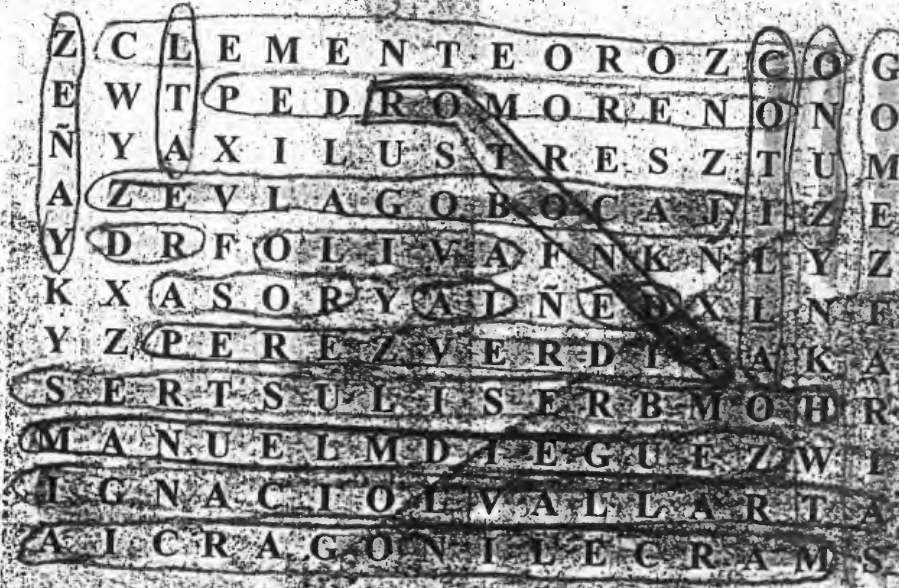 Z C L E M E N T E O R O Z C O G
E W T P E D R O M O R E N O N O
Ñ Y A X I L U S T R E S Z T U M
A Z E V L A G O B O C A J I Z E
Y D R F O L I V A F N K N L Y Z
K X A S O R Y A L Ñ E D X L N F
Y Z P E R E Z V E R D I A A K A
S E R T S U L I S E R B M O H R
M A N U E L M D I E G U E Z W L
I G N A C I O L V A L L A R T A
A I C R A G O N I L E C R A M S